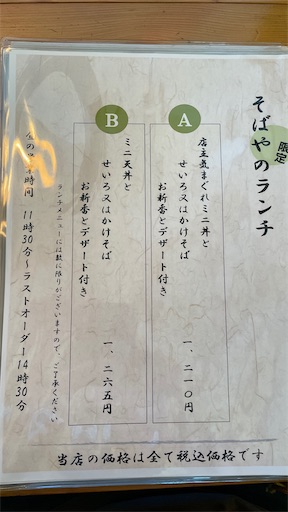 そばやのランチ
限定
A
店主気まぐれミニ丼と
せいろ又はかけそば
お新香とデザート付き
一、二一〇円
B
ミニ天丼と
せいろ又はかけそば
お新香とデザート付き
一、二六五円
ランチメニューには数に限りがございますので、ご了承ください
時間 11時30分~ラストオーダー14時30分
当店の価格は全て税込価格です